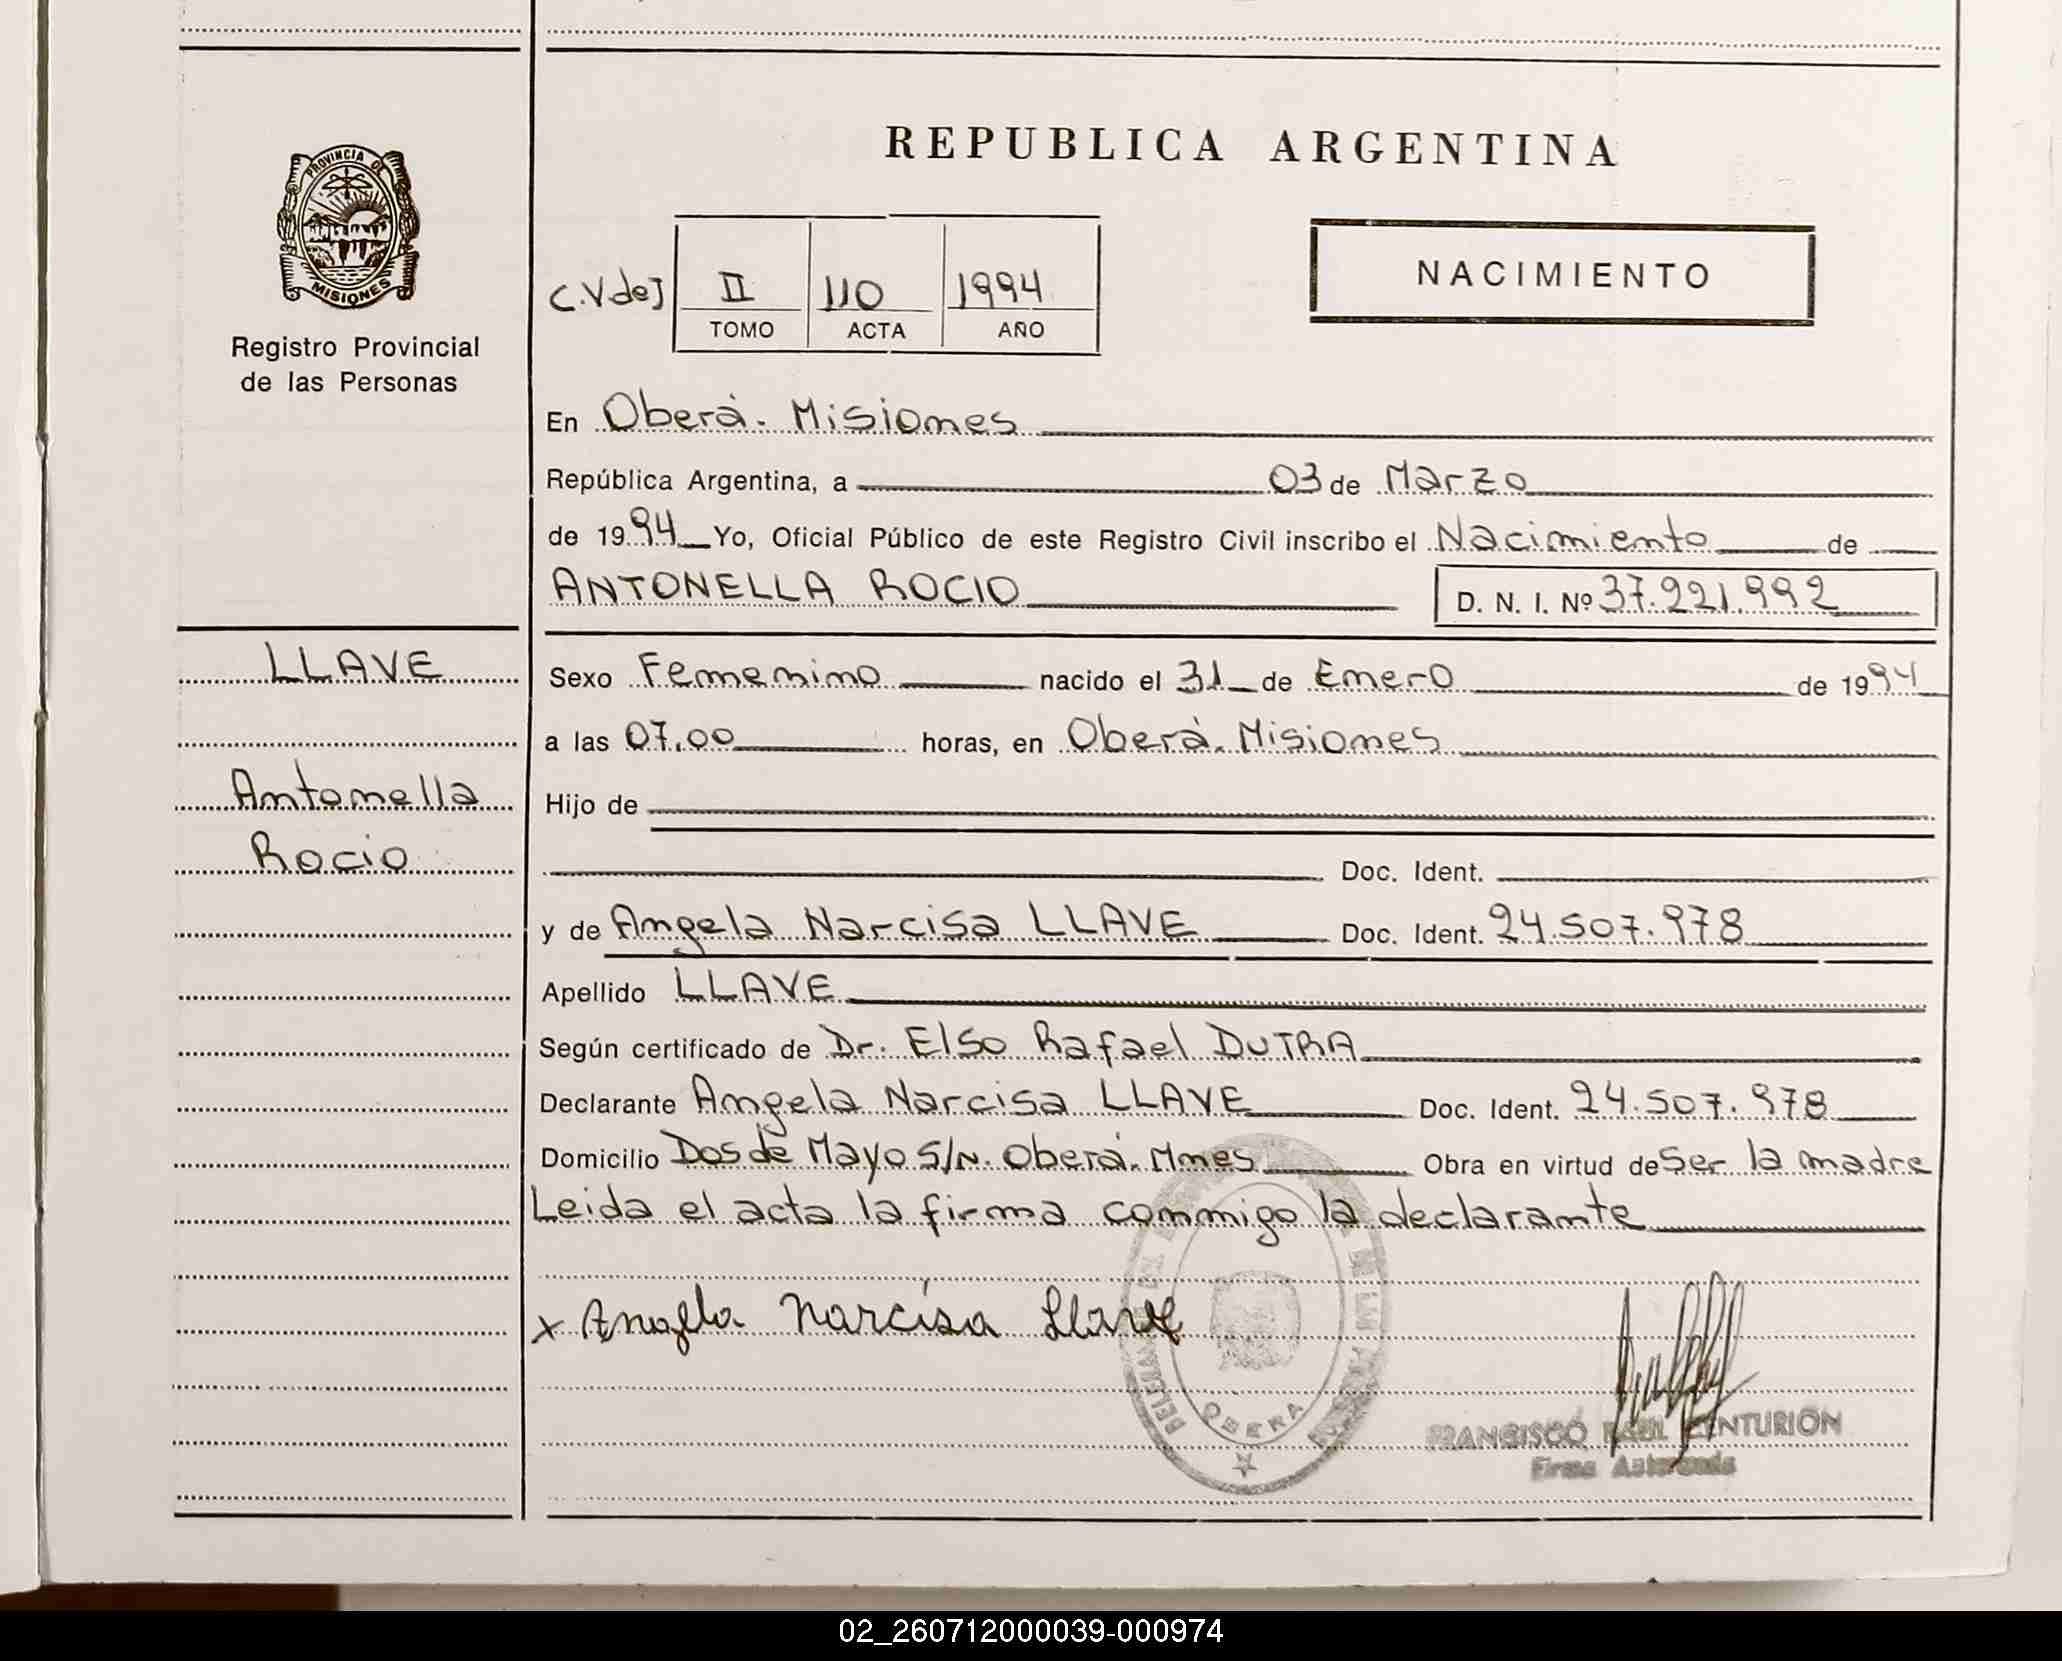 REPUBLICA ARGENTINA
PROVINCIA DE MISIONES
Registro Provincial
de las Personas
C.V de J II 110 1994
TOMO ACTA AÑO
NACIMIENTO
En Oberá. Misiones
República Argentina, a 03 de Marzo
de 1994 Yo, Oficial Público de este Registro Civil inscribo el Nacimiento de
ANTONELLA ROCIO D. N. I. Nº 37.221.992
LLAVE
Antonella
Rocio
Sexo Femenino nacido el 31 de Enero de 1994
a las 07.00 horas, en Oberá. Misiones
Hijo de
Doc. Ident.
y de Angela Narcisa LLAVE Doc. Ident. 24.507.978
Apellido LLAVE
Según certificado de Dr. Elso Rafael DUTRA
Declarante Angela Narcisa LLAVE Doc. Ident. 24.507.978
Domicilio Dos de Mayo S/N. Oberá. Mnes Obra en virtud de Ser la madre
Leida el acta la firma conmigo la declarante
x Angela Narcisa Llave
OBERA
FRANCISCO RAUL CENTURION
Firma Autorizada
02_260712000039-000974